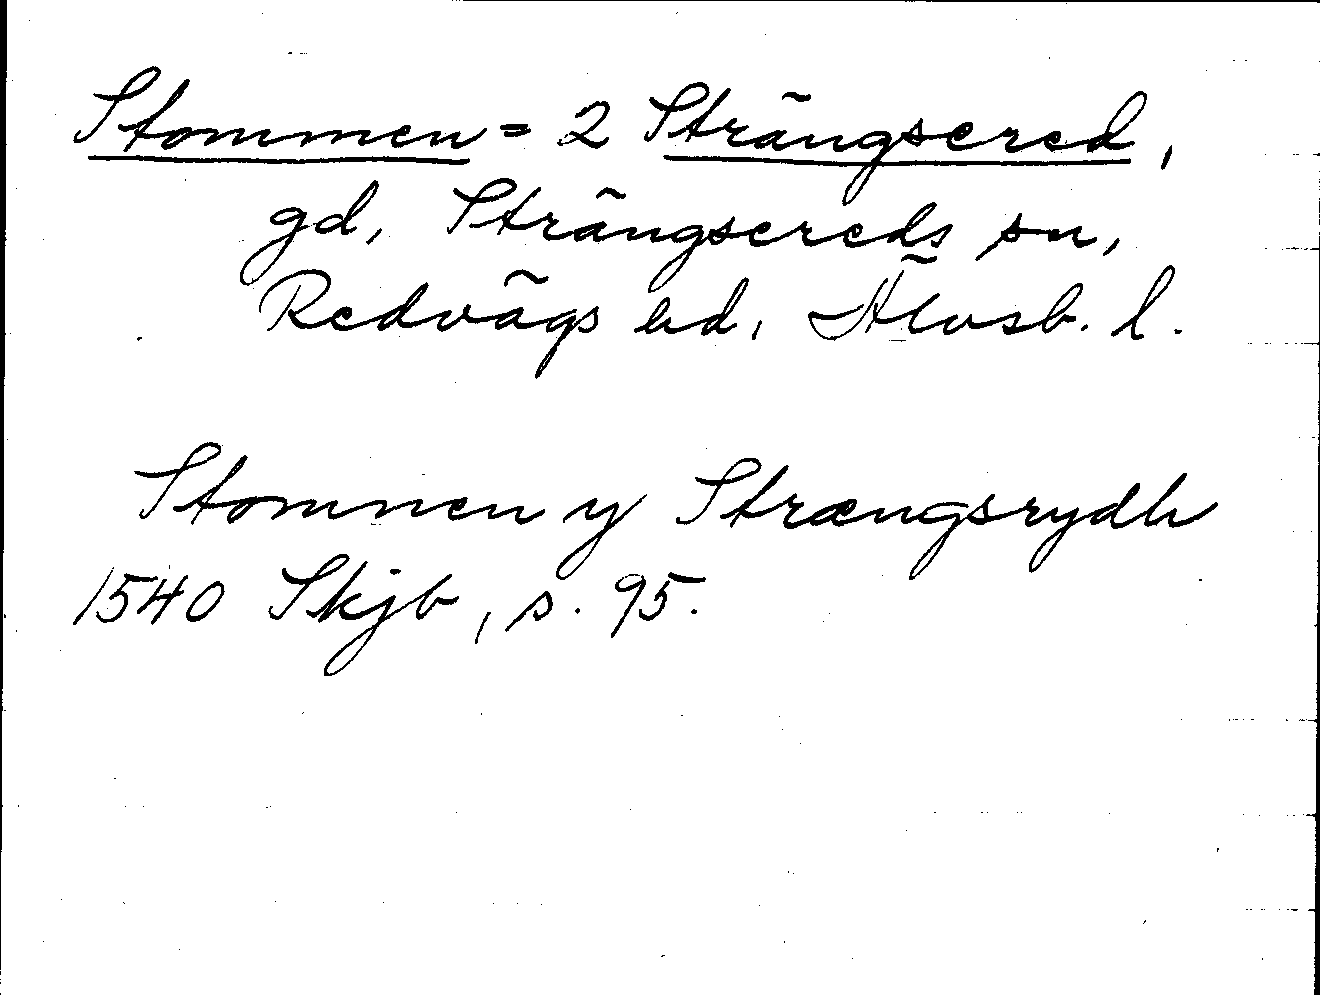 Stommen = 2 Strängsered,
gd, Strängsereds sn,
Redvägs hd, Älvsb. l.
Stommen y Strængsrydh
1540 Skjb, s. 95.